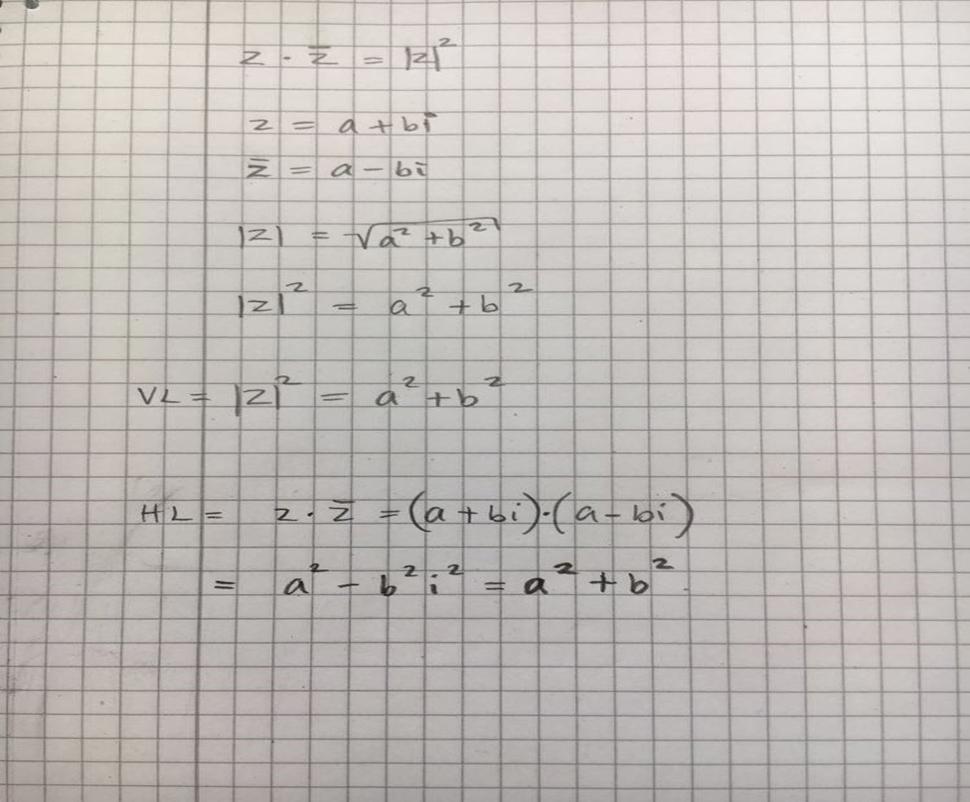 z · z̄ = |z|²
z = a + bi
z̄ = a - bi
|z| = √(a² + b²)
|z|² = a² + b²
VL = |z|² = a² + b²
HL = z · z̄ = (a + bi) · (a - bi)
= a² - b²i² = a² + b²